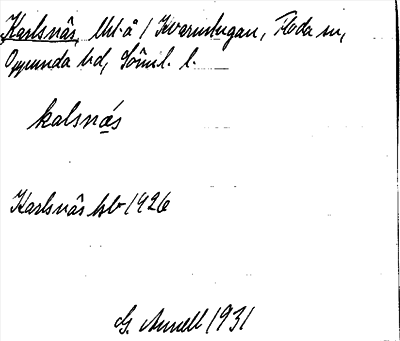 Karlsnäs, lht å Kvarnstugan, Floda sn,
Oppunda hd, Söml. l.
kalsnás
Karlsnäs hb 1926
G. Annell 1931